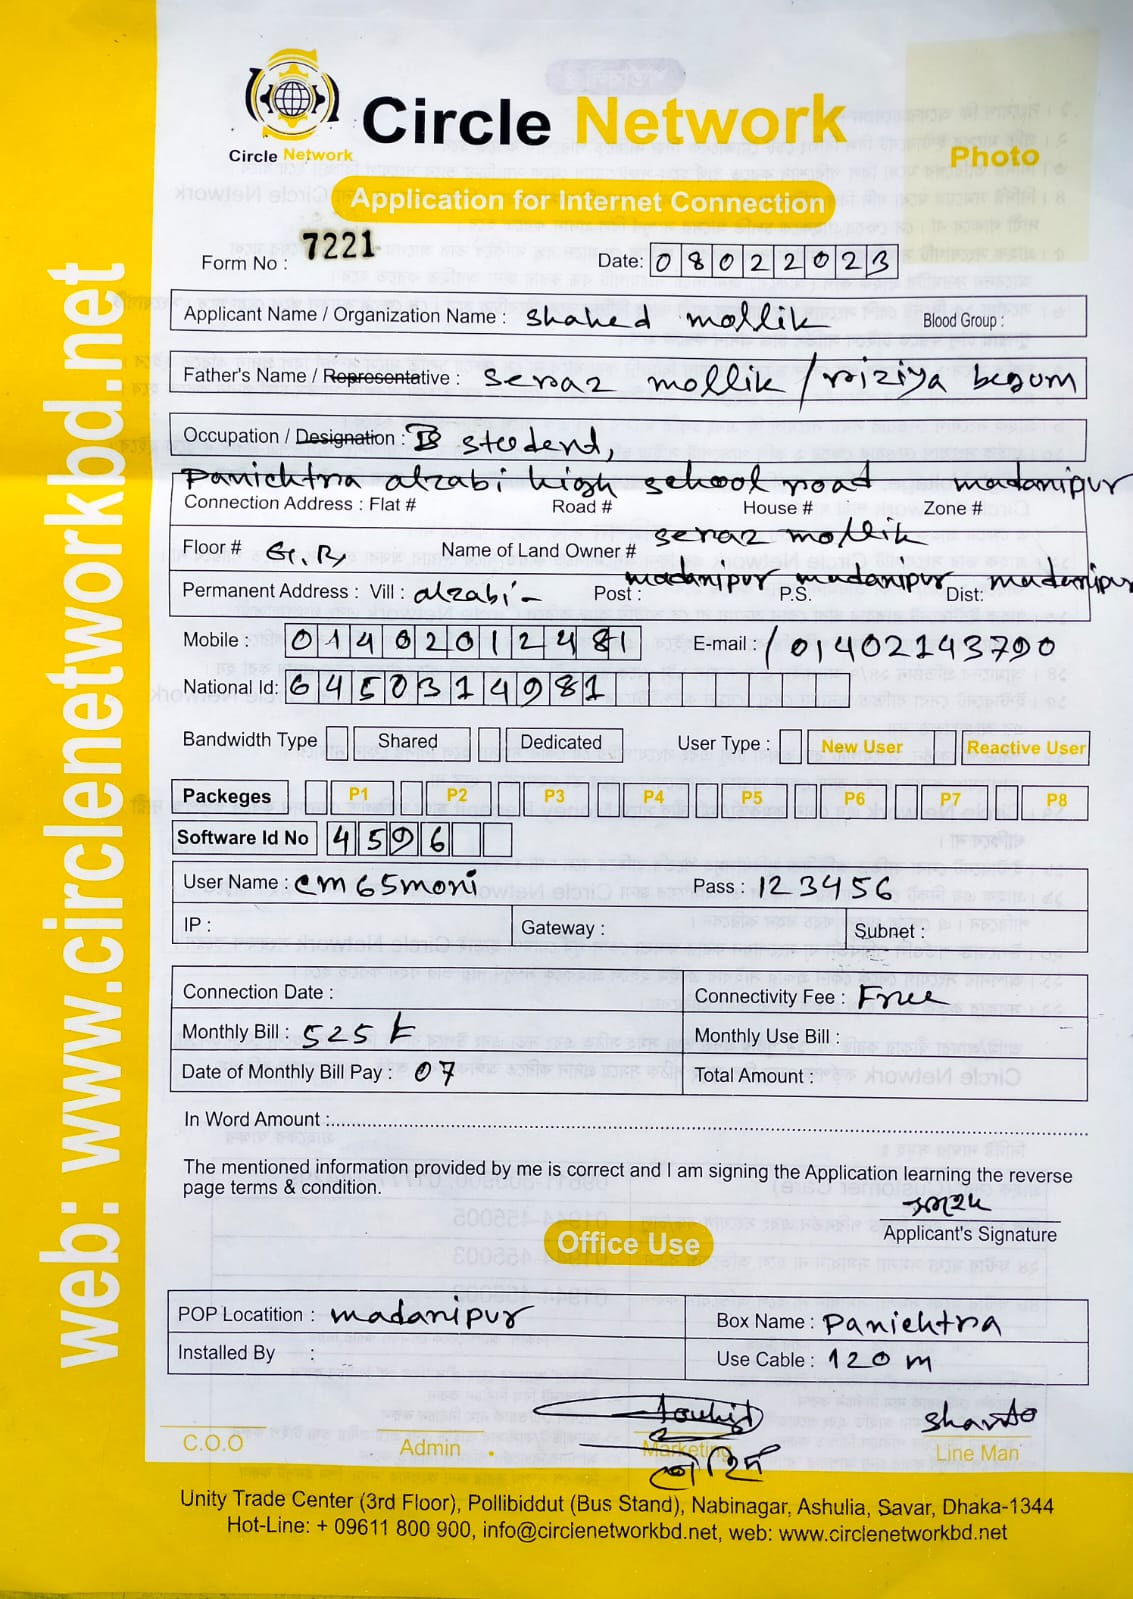 Circle Network
Circle Network
Photo
Application for Internet Connection
Form No : 7221
Date: 08022023
Applicant Name / Organization Name : Shahed mollik Blood Group :
Father's Name / Representative : Seraz mollik / riziya begum
Occupation / Designation : B studend,
Panichtra alzabi high school road madanipur
Connection Address : Flat # Road # House # Zone #
Floor # Name of Land Owner # seraz mollik
Permanent Address : Vill : alzabi - Post : madanipur P.S. madanipur Dist: madanipur
Mobile : 01402012481 E-mail : / 01402143790
National Id: 6450314981
Bandwidth Type Shared Dedicated User Type : New User Reactive User
Packeges P1 P2 P3 P4 P5 P6 P7 P8
Software Id No 4596
User Name : cm65moni Pass : 123456
IP : Gateway : Subnet :
Connection Date : Connectivity Fee : Free
Monthly Bill : 525 t Monthly Use Bill :
Date of Monthly Bill Pay : 07 Total Amount :
In Word Amount :
The mentioned information provided by me is correct and I am signing the Application learning the reverse
page terms & condition.
Applicant's Signature
Office Use
POP Locatition : madanipur Box Name : Panichtra
Installed By : Use Cable : 120 m
Touhid Shanto
C.O.O Admin Marketing Line Man
তৌহিদ
Unity Trade Center (3rd Floor), Pollibiddut (Bus Stand), Nabinagar, Ashulia, Savar, Dhaka-1344
Hot-Line: + 09611 800 900, info@circlenetworkbd.net, web: www.circlenetworkbd.net
web: www.circlenetworkbd.net